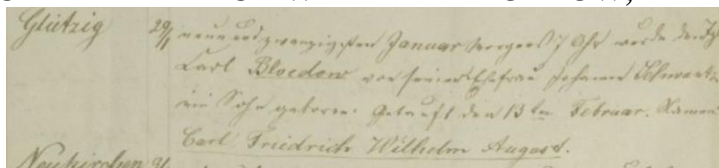 Glietzig 29/1 neun und zwanzigsten Januar morgens 7 Uhr wurde dem
Carl Bloedow von seiner Ehefrau Johanne Schwantz
ein Sohn geboren. Getauft den 13ten Februar. Namen:
Carl Friedrich Wilhelm August.
Neukirchen